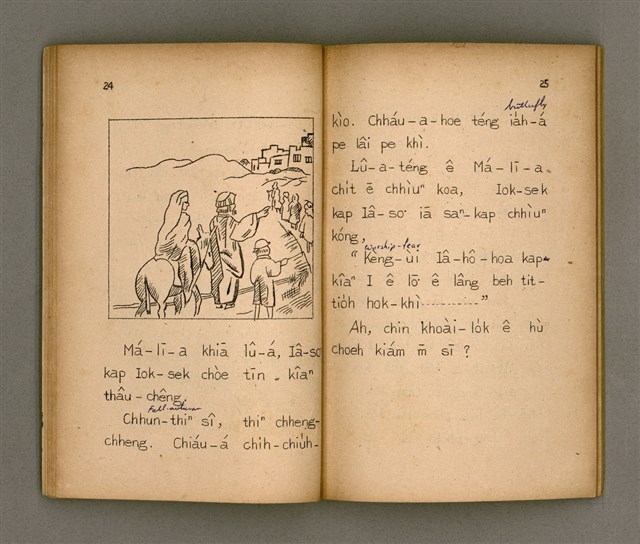 24
Má-lī-a khiā lû-á, Iâ-so
kap Iok-sek chòe tīn. kîaⁿ
thâu-chêng.
Fall-autumn
Chhun-thiⁿ sî, thiⁿ chheng-
chheng. Chiáu-á chi̍h-chiu̍h-
25
butterfly
kìo. Chháu-a-hoe téng ia̍h-á
pe lâi pe khì.
Lû-a-téng ê Má-lī-a.
chi̍t ē chhìuⁿ koa, Iok-sek
kap Iâ-so͘ iā saⁿ-kap chhìuⁿ
kóng,
worship-fear
"Kèng-ùi Iâ-hô-hoa kap
kîaⁿ I ê lō͘ ê lâng beh tit-
tio̍h hok-khì--------"
Ah, chin khoài-lo̍k ê hù
choeh kiám m̄ sī?